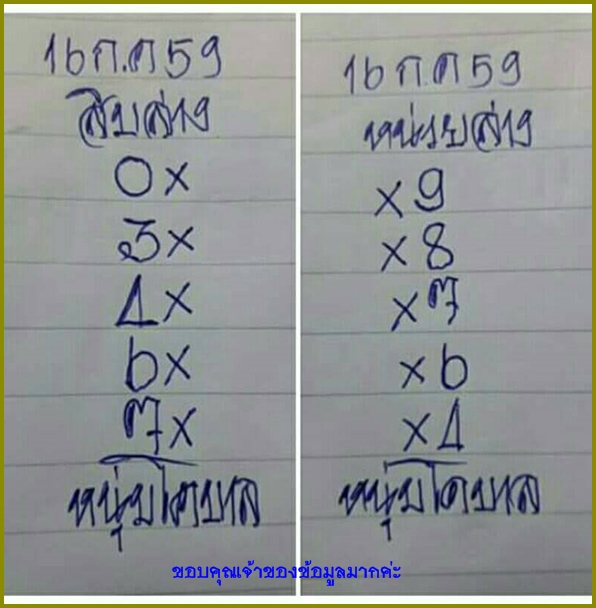 16 ก.ค 59
สิบล่าง
0x
3x
4x
6x
7x
หนุ่มโคบาล
16 ก.ค 59
หน่วยล่าง
x9
x8
x7
x6
x4
หนุ่มโคบาล
ขอบคุณเจ้าของข้อมูลมากค่ะ